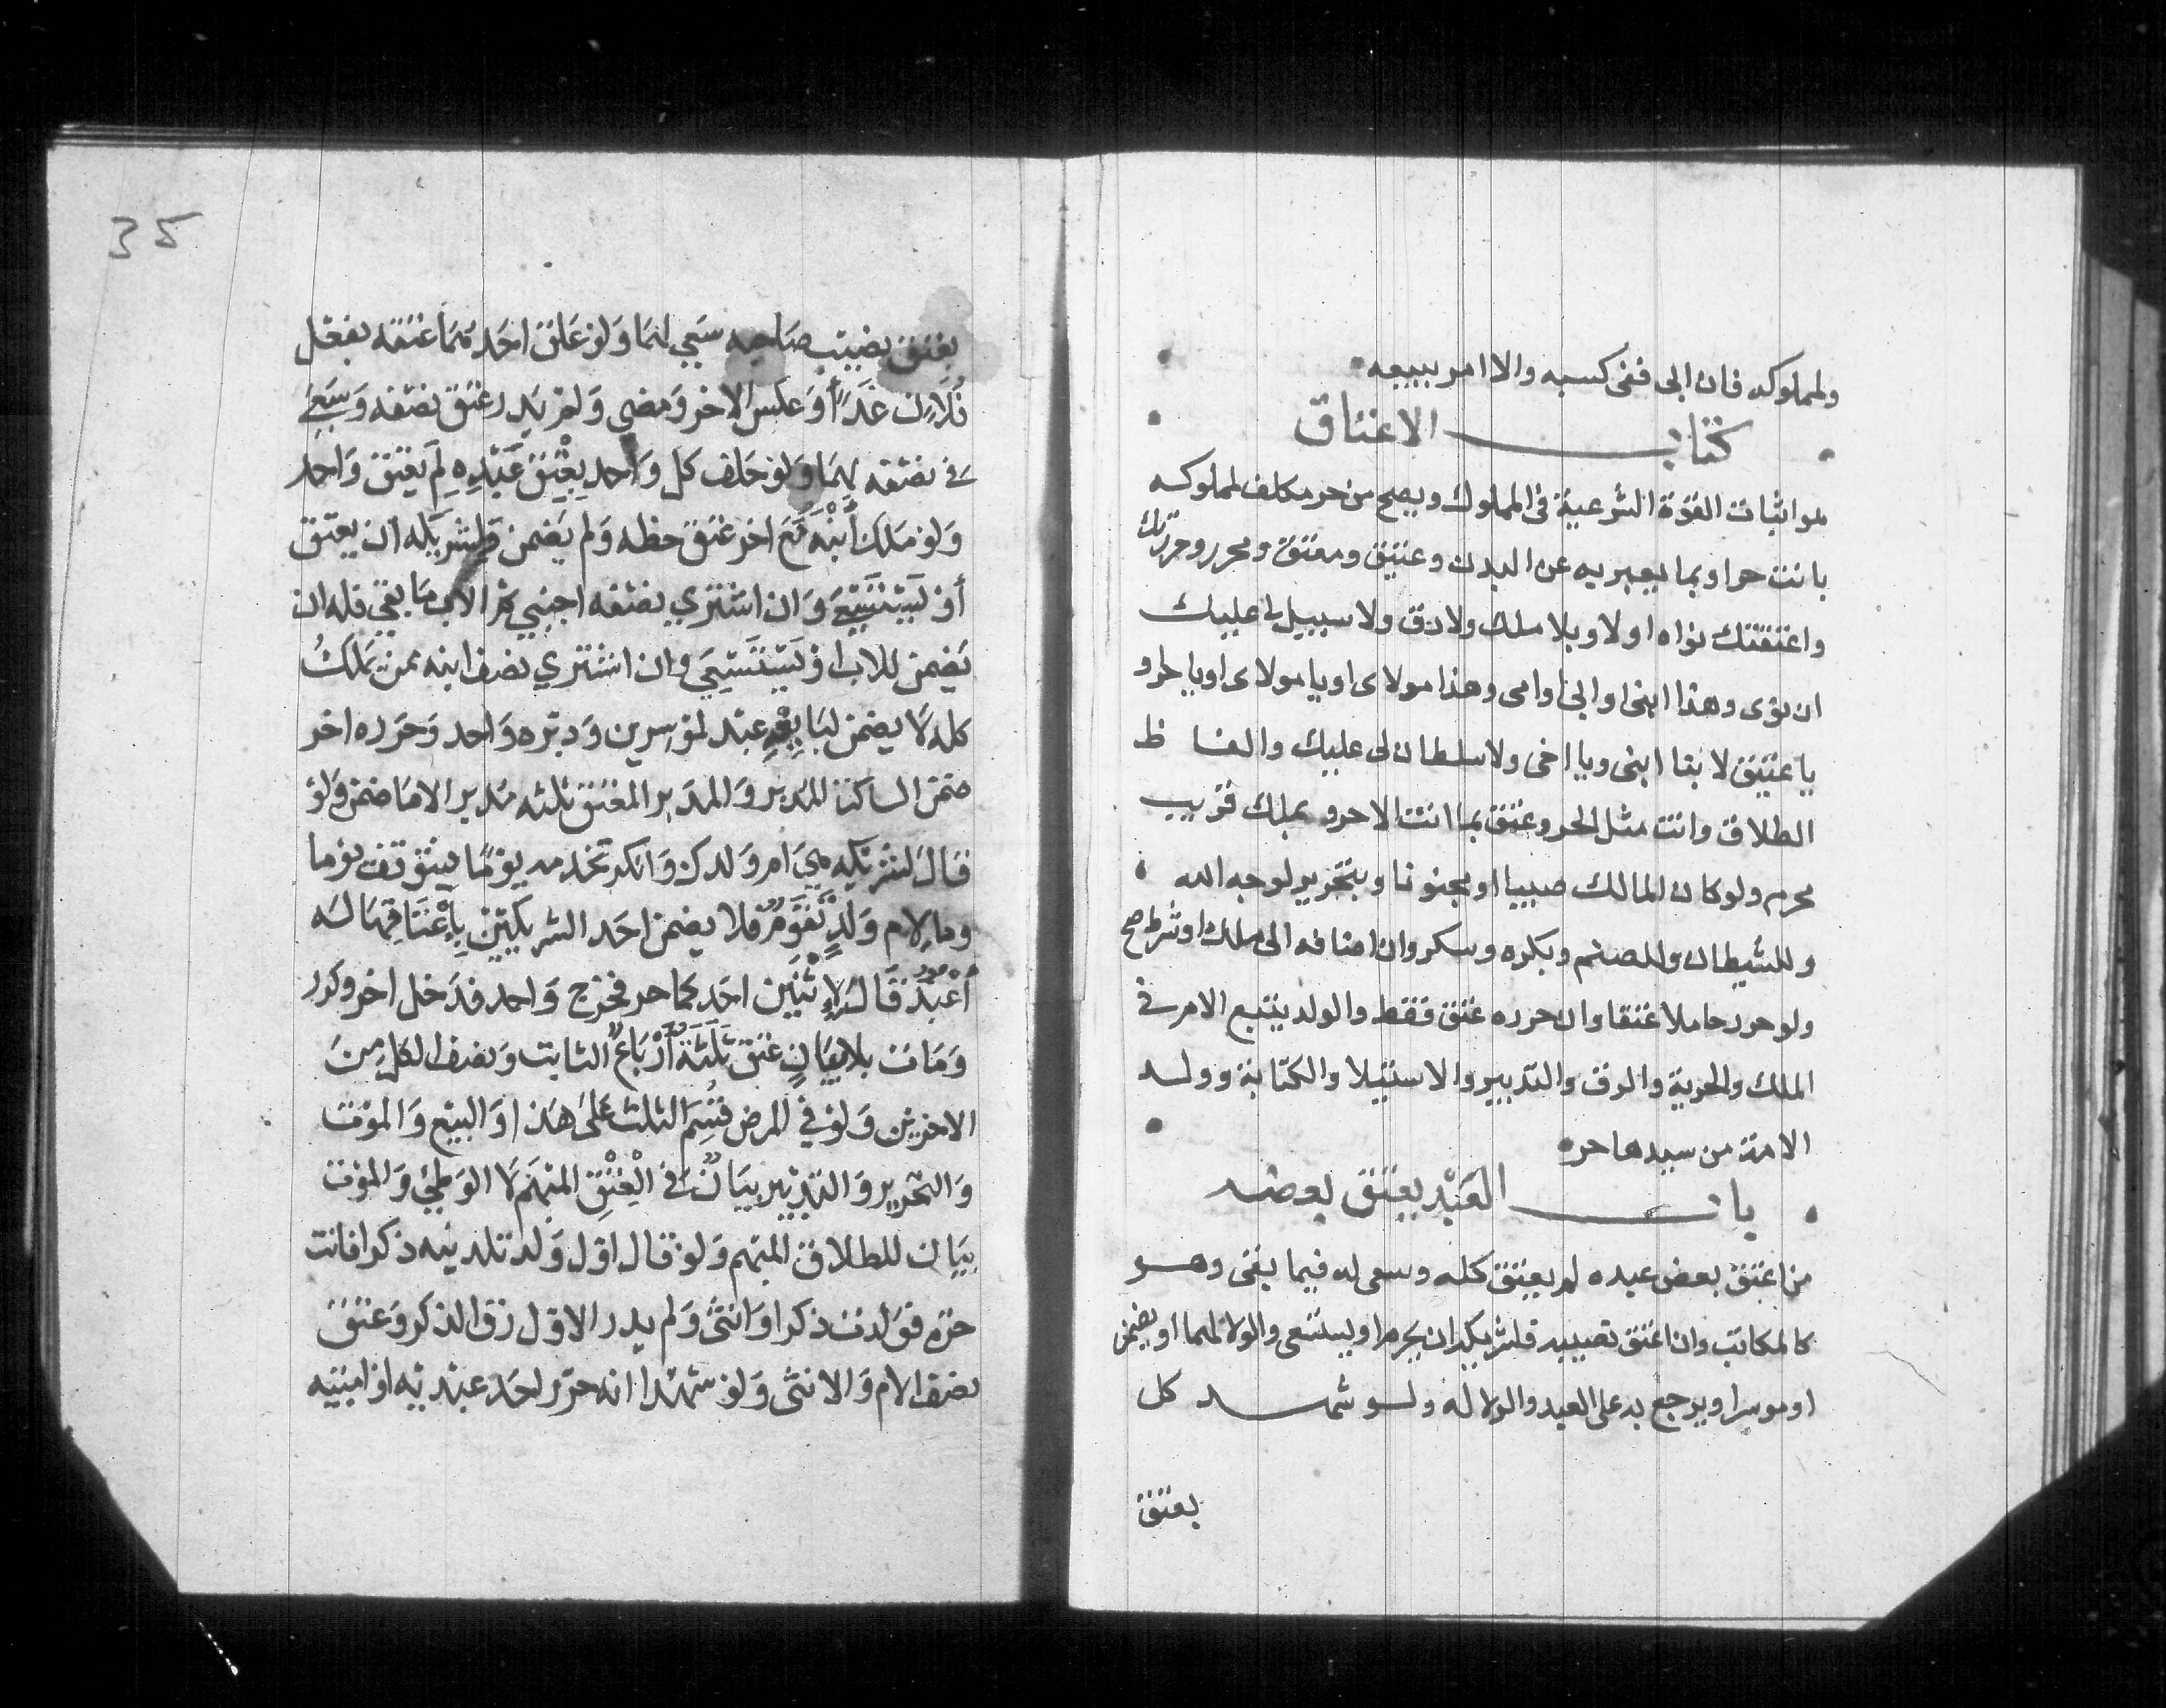 ولمملوكه فان ابى ففى كسبه والا امر ببيعه
كتاب الاعتاق
هو اثبات القوة الشرعية فى المملوك ويصح من حر مكلف لمملوكه
بانت حر او بما يعبر به عن البدن وعتيق ومعتق ومحرر وحررتك
واعتقتك نواه اولا وبلا ملك ولا رق ولا سبيل لى عليك
ان نوى وهذا ابنى او ابى او امى وهذا مولاى او يا مولاى او يا حر او
يا عتيق لا بيا ابنى ويا اخى ولا سلطان لى عليك والفاظ
الطلاق وانت مثل الحر وعتق بما انت الا حر و بملك قريب
محرم ولو كان المالك صبيا او مجنونا وبتحرير لوجه الله
وللشيطان وللصنم وبكره وسكر وان اضافه الى ملك او شرط صح
ولو حرر حاملا عتقا وان حرره عتق فقط والولد يتبع الام فى
الملك والحرية والرق والتدبير والاستيلا والكتابة وولد
الامة من سيدها حره
باب العَبْد يعتق بعضه
من اعتق بعض عبده لم يعتق كله وسعى له فيما بقى وهو
كالمكاتب وان اعتق نصيبه فلشريكه ان يحرر او يستسعى والولا لهما او يضمن
او موسرا ويرجع به على العبد والولا له ولو شهد كل
يعتق
35
بعتق نصيب صاحبه سَعي لهمَا وَلو عَلق احَدهمَا عتقه بفعل
فُلاَن غدًا أَو عكس الاخر وَمضى وَلم يَدر عتق نصفه وَسَعى
فى نصفه لهمَا وَلو حَلف كل وَاحد بِعِتْقِ عَبْدِهِ لم يَعتق وَاحد
وَلو مَلك أبْنَه مَع اخر عَتق حظه وَلم يَضمن وَلشريكه ان يعتق
أو يَسْتَسْعَى وَان اشتري نصفه اجنبي ثم الاب مَا بقي فله ان
يَضمن للاب او يَسْتَسْعَي وان اشتري نصف ابنه ممن يَملكُ
كله لَا يضمن لبَايِعِهِ عبد لموسرين وَدبّره وَاحد وَحَرره اخر
ضمن الساكت المُدبر وَالمدَبر المعتق ثلثه مُدبر الا مَا ضمن وَلو
قَال لشريكه هي ام وَلدك وَانكر تخدمه يومًا يتوَقف يوما
وما لِام وَلَدٍ تَقَوُّمٌ فلا يضمن احَد الشريكيْن بِاِعْتَاقِهَا له
أَعْبُدٌ قَال لِاثْنَين احَدكما حر فخرج وَاحد فدَخل اخر وكرر
وَمَات بلا بيَانٍ عتق ثَلَثَةُ أَرْبَاع الثابت وَنصف الكل مِنَ
الاخرين وَلو في المرض قُسِمَ الثلث عَلى هَذا وَالبيع وَالموت
وَالتحرير وَالتدبير بيَانٌ فى الْعِتْقِ المبْهَم لَا الوَطي وَالموت
بيَان للطلاق المبهم وَلو قال اوّل وَلد تلدينه ذكرا فانت
حرّة فوَلدت ذكرا وَانثَى وَلم يدر الاوّل رَقّ الذكر وَعتق
نصف الام وَالانثى وَلو شهدا انه حرّر احَد عبدَيه او امتيه